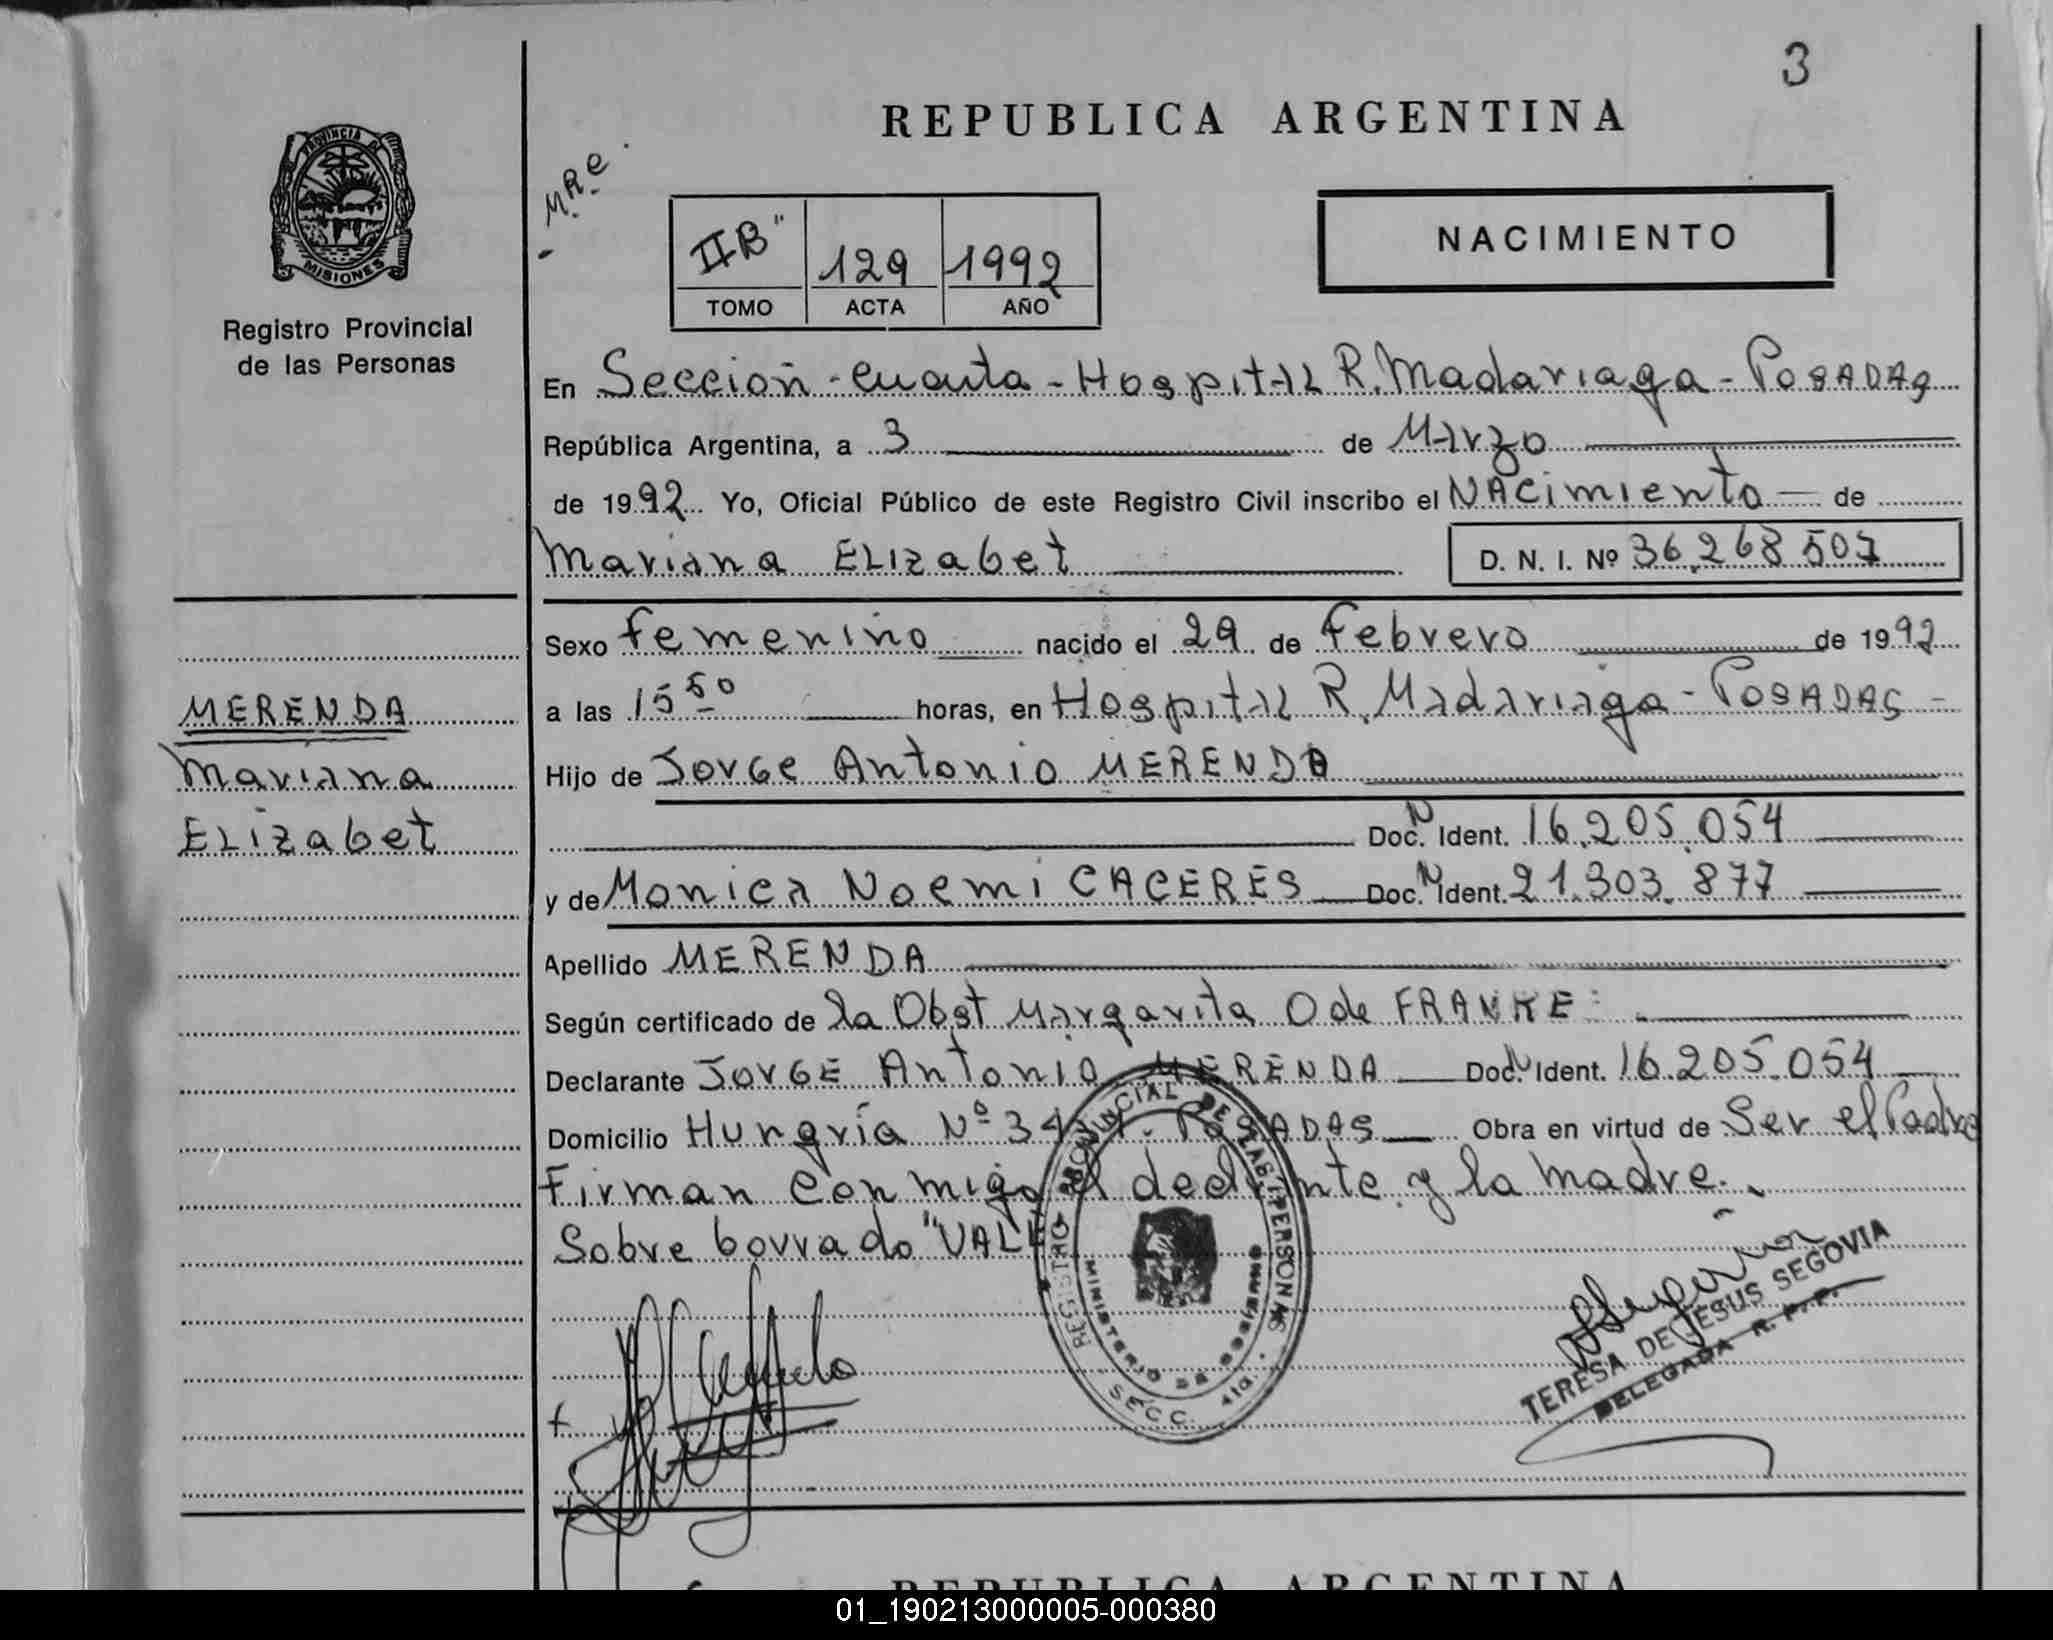 3
REPUBLICA ARGENTINA
PROVINCIA DE
MISIONES
Registro Provincial
de las Personas
II "B" 129 1992
TOMO ACTA AÑO
NACIMIENTO
En Sección - Cuarta - Hospital R. Madariaga - Posadas
República Argentina, a 3 de Marzo
de 1992 Yo, Oficial Público de este Registro Civil inscribo el Nacimiento de
Mariana Elizabet D. N. I. Nº 36.268.507
Sexo femenino nacido el 29 de Febrero de 1992
a las 15 50 horas, en Hospital R. Madariaga - Posadas -
MERENDA
Mariana
Elizabet
Hijo de Jorge Antonio MERENDA
Doc. N Ident. 16.205.054
y de Monica Noemi CACERES Doc. N Ident. 21.303.877
Apellido MERENDA
Según certificado de la Obst Margarita O de FRANKE
Declarante Jorge Antonio MERENDA Doc. N Ident. 16.205.054
Domicilio Hungría Nº Posadas Obra en virtud de Ser el Padre
Firman conmigo el declarante y la madre.
Sobre borrado "VALE
REGISTRO PROVINCIAL DE LAS PERSONAS
MINISTERIO DE GOBIERNO
SECC. 4ta.
TERESA DE JESUS SEGOVIA
DELEGADA R. P. P.
REPUBLICA ARGENTINA
01_190213000005-000380